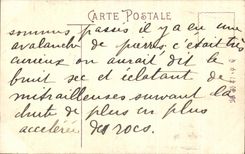 CARTE POSTALE
sommes passés il y a eu une
avalanche de pierres, c'était très
curieux on aurait dit le
bruit sec et éclatant de
mitrailleuses suivant la
chute de plus en plus
accélérée des rocs.